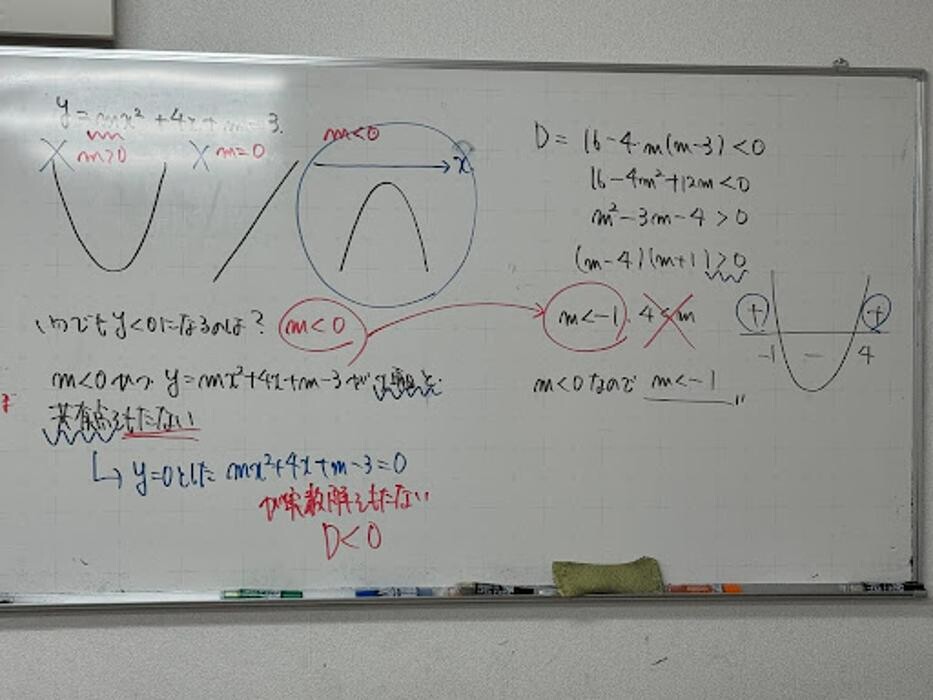 y = mx² + 4x + m - 3.
m>0
m=0
m<0
x
いつでも y<0 になるのは?
m<0
m<0 かつ y=mx²+4x+m-3 が x軸と
共有点をもたない
↳ y=0とした mx²+4x+m-3=0
が実数解をもたない
D<0
D = 16-4·m(m-3)<0
16-4m²+12m<0
m²-3m-4>0
(m-4)(m+1)>0
m<-1, 4<m
m<0なので m<-1 〃
+
+
-1
-
4